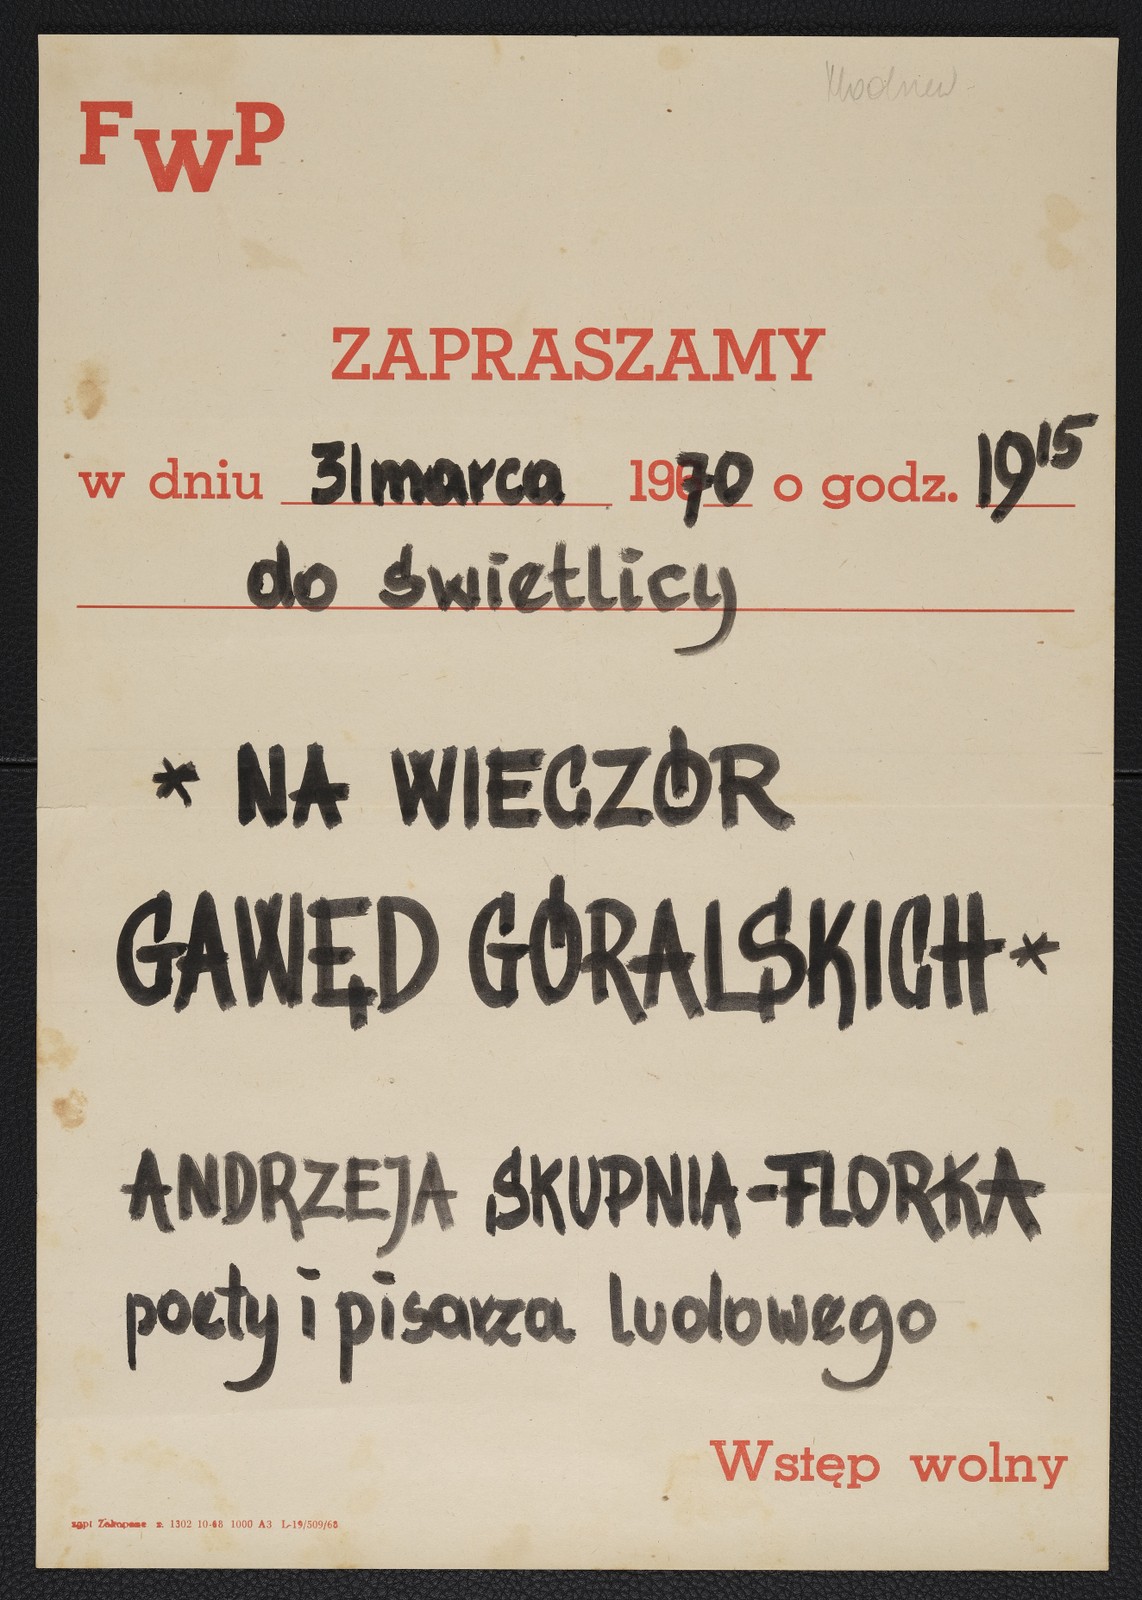 FWP
ZAPRASZAMY
w dniu 31 marca 1970 o godz. 19 15
do świetlicy
* NA WIECZÓR
GAWĘD GÓRALSKICH *
ANDRZEJA SKUPNIA-FLORKA
poety i pisarza ludowego
Wstęp wolny
zgpt Zakopane z. 1302 10-68 1000 A3 L-19/509/68